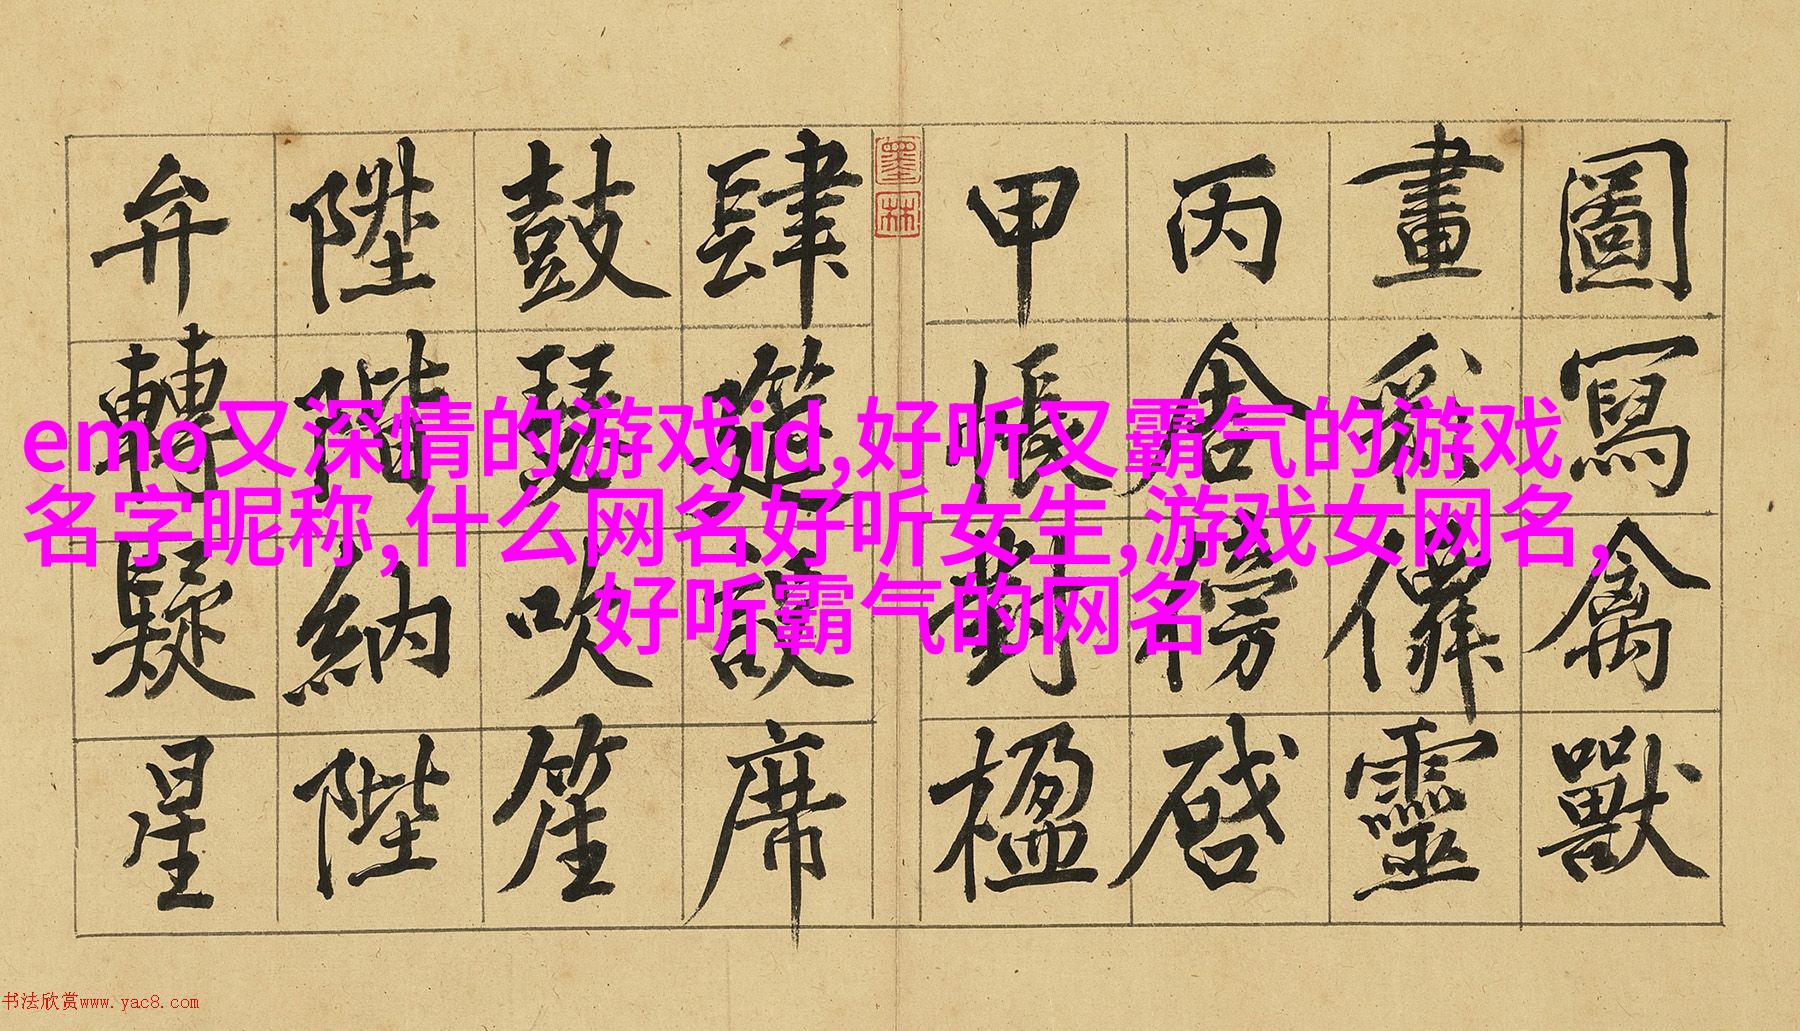 圖寫禽獸
畫彩僊靈
丙舍傍啓
甲帳對楹
墨林
肆筵設席
鼓瑟吹笙
陞階納陛
弁轉疑星
emo又深情的游戏id,好听又霸气的游戏
名字昵称,什么网名好听女生,游戏女网名,
好听霸气的网名
书法欣赏www.yac8.com